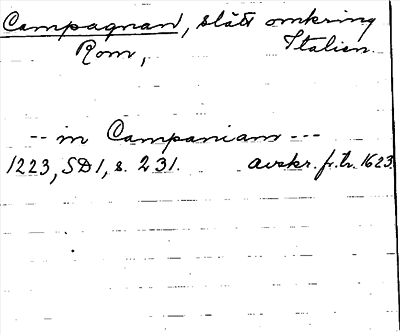 Campagnan, slätt omkring
Rom, Italien.
-- in Campaniam ---
1223, SD 1, s. 231. avskr. fr. tr. 1623.